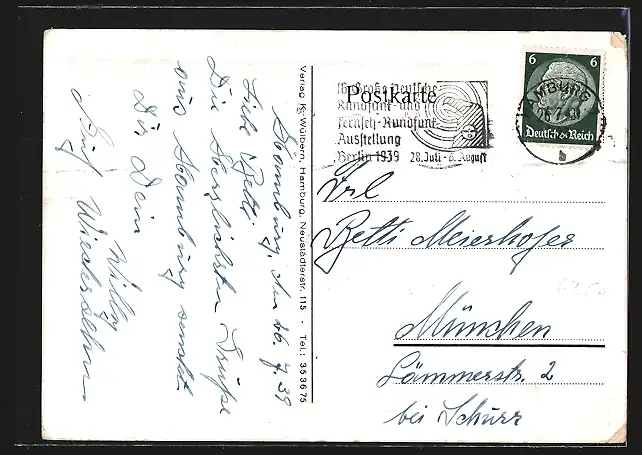 Hamburg, den 26.7.39
Liebe Betti
Die Herzlichsten Grüße
aus Hamburg sendet
Dir Dein
Willy
Auf Wiedersehn
Verlag K. Wülbern, Hamburg, Neustädterstr. 115 · Tel.: 353675
Postkarte
16. Große Deutsche
Rundfunk- und
Fernseh-Rundfunk-
Ausstellung
Berlin 1939 28. Juli - 6. August
6 6
Deutsches Reich
HAMBURG
b
Frl
Betti Meierhofer
München
Lämmerstr. 2
bei Schurr